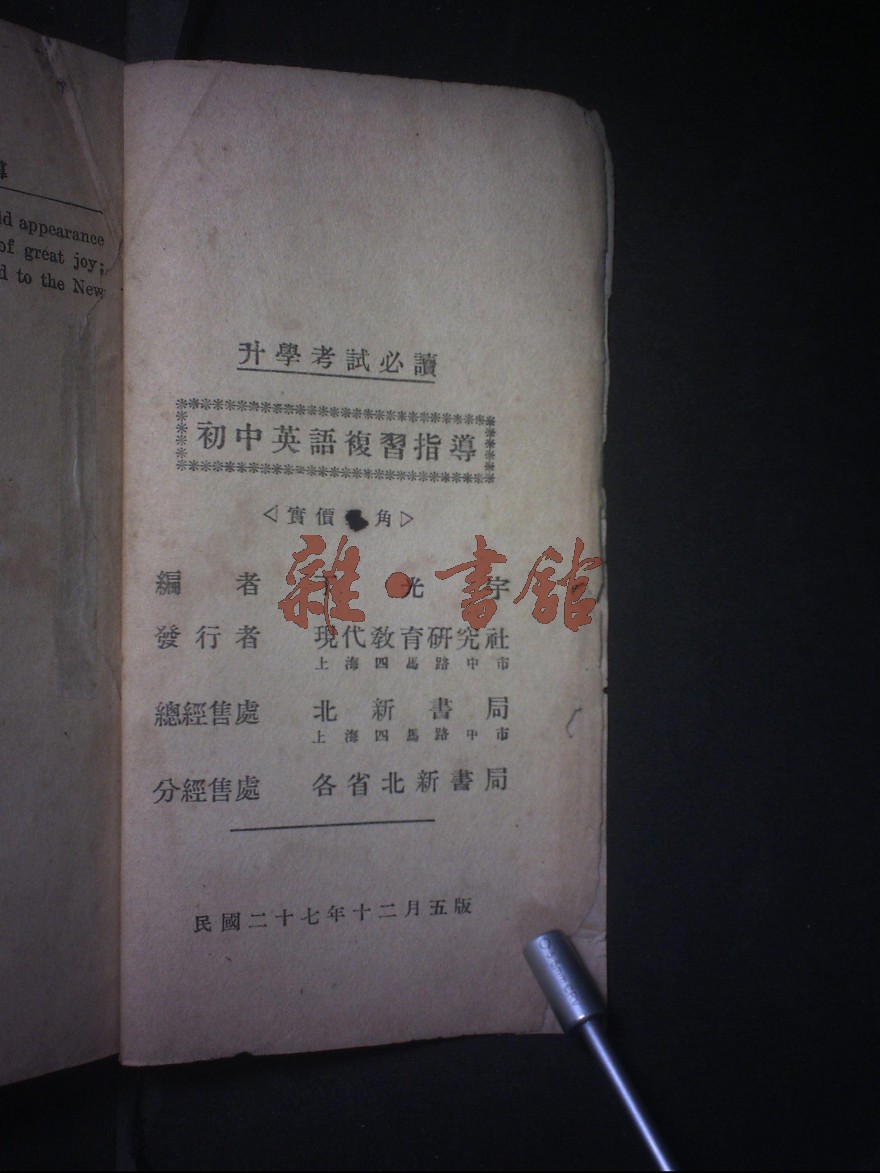 導
ld appearance
of great joy;
d to the New
升學考試必讀
初中英語複習指導
實價 角
編者 光宇
發行者 現代教育研究社
上海四馬路中市
總經售處 北新書局
上海四馬路中市
分經售處 各省北新書局
民國二十七年十二月五版
雜·書館